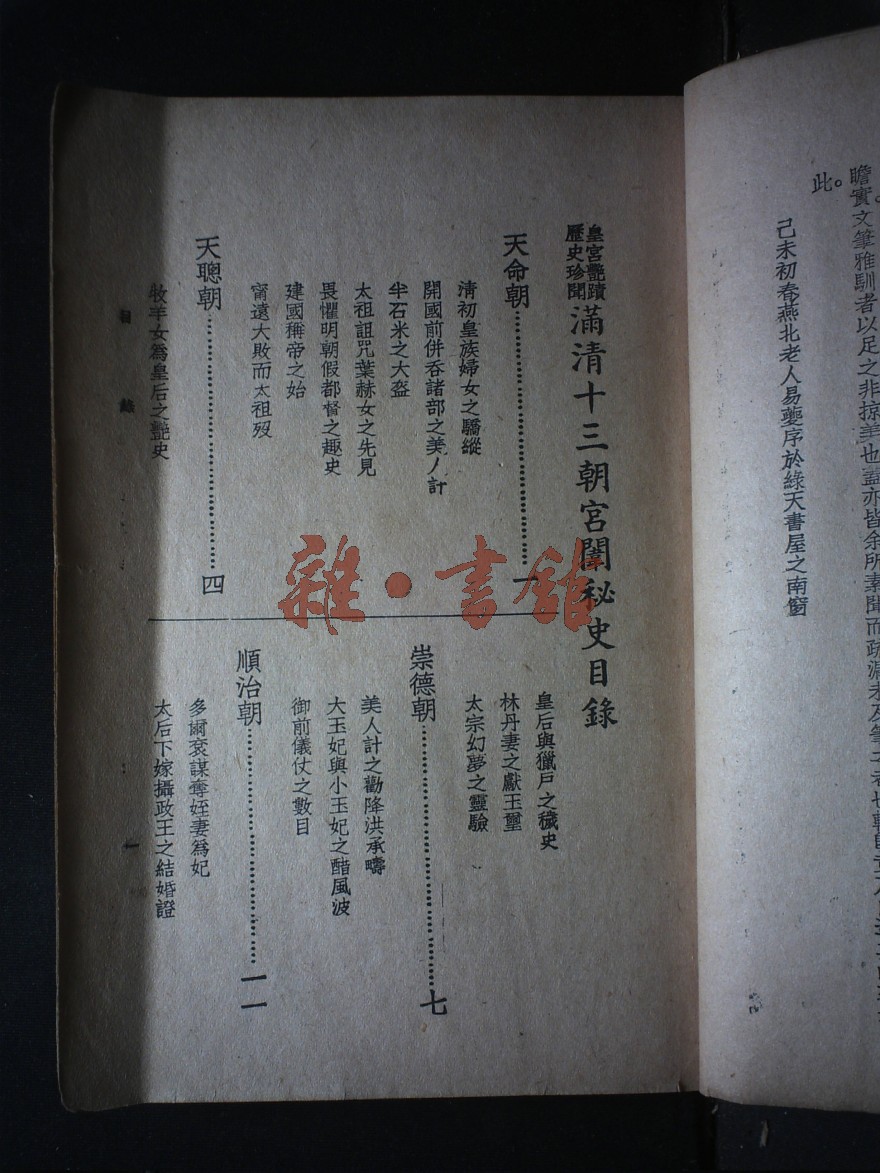 瞻實文筆雅馴者以足之非掠美也蓋亦皆余所素聞而疏漏未及筆之者也
此。
己未初春燕北老人易夔序於綠天書屋之南窗
皇宮豔蹟
歷史珍聞
滿清十三朝宮闈秘史目錄
天命朝…………一
清初皇族婦女之驕縱
開國前併吞諸部之美人計
半石米之大盜
太祖詛咒葉赫女之先見
畏懼明朝假都督之趣史
建國稱帝之始
甯遠大敗而太祖歿
天聰朝…………四
牧羊女爲皇后之豔史
皇后與獵戶之穢史
林丹妻之獻玉璽
太宗幻夢之靈驗
崇德朝…………七
美人計之勸降洪承疇
大玉妃與小玉妃之醋風波
御前儀仗之數目
順治朝…………一一
多爾袞謀奪姪妻爲妃
太后下嫁攝政王之結婚證
目錄
一
雜·書館